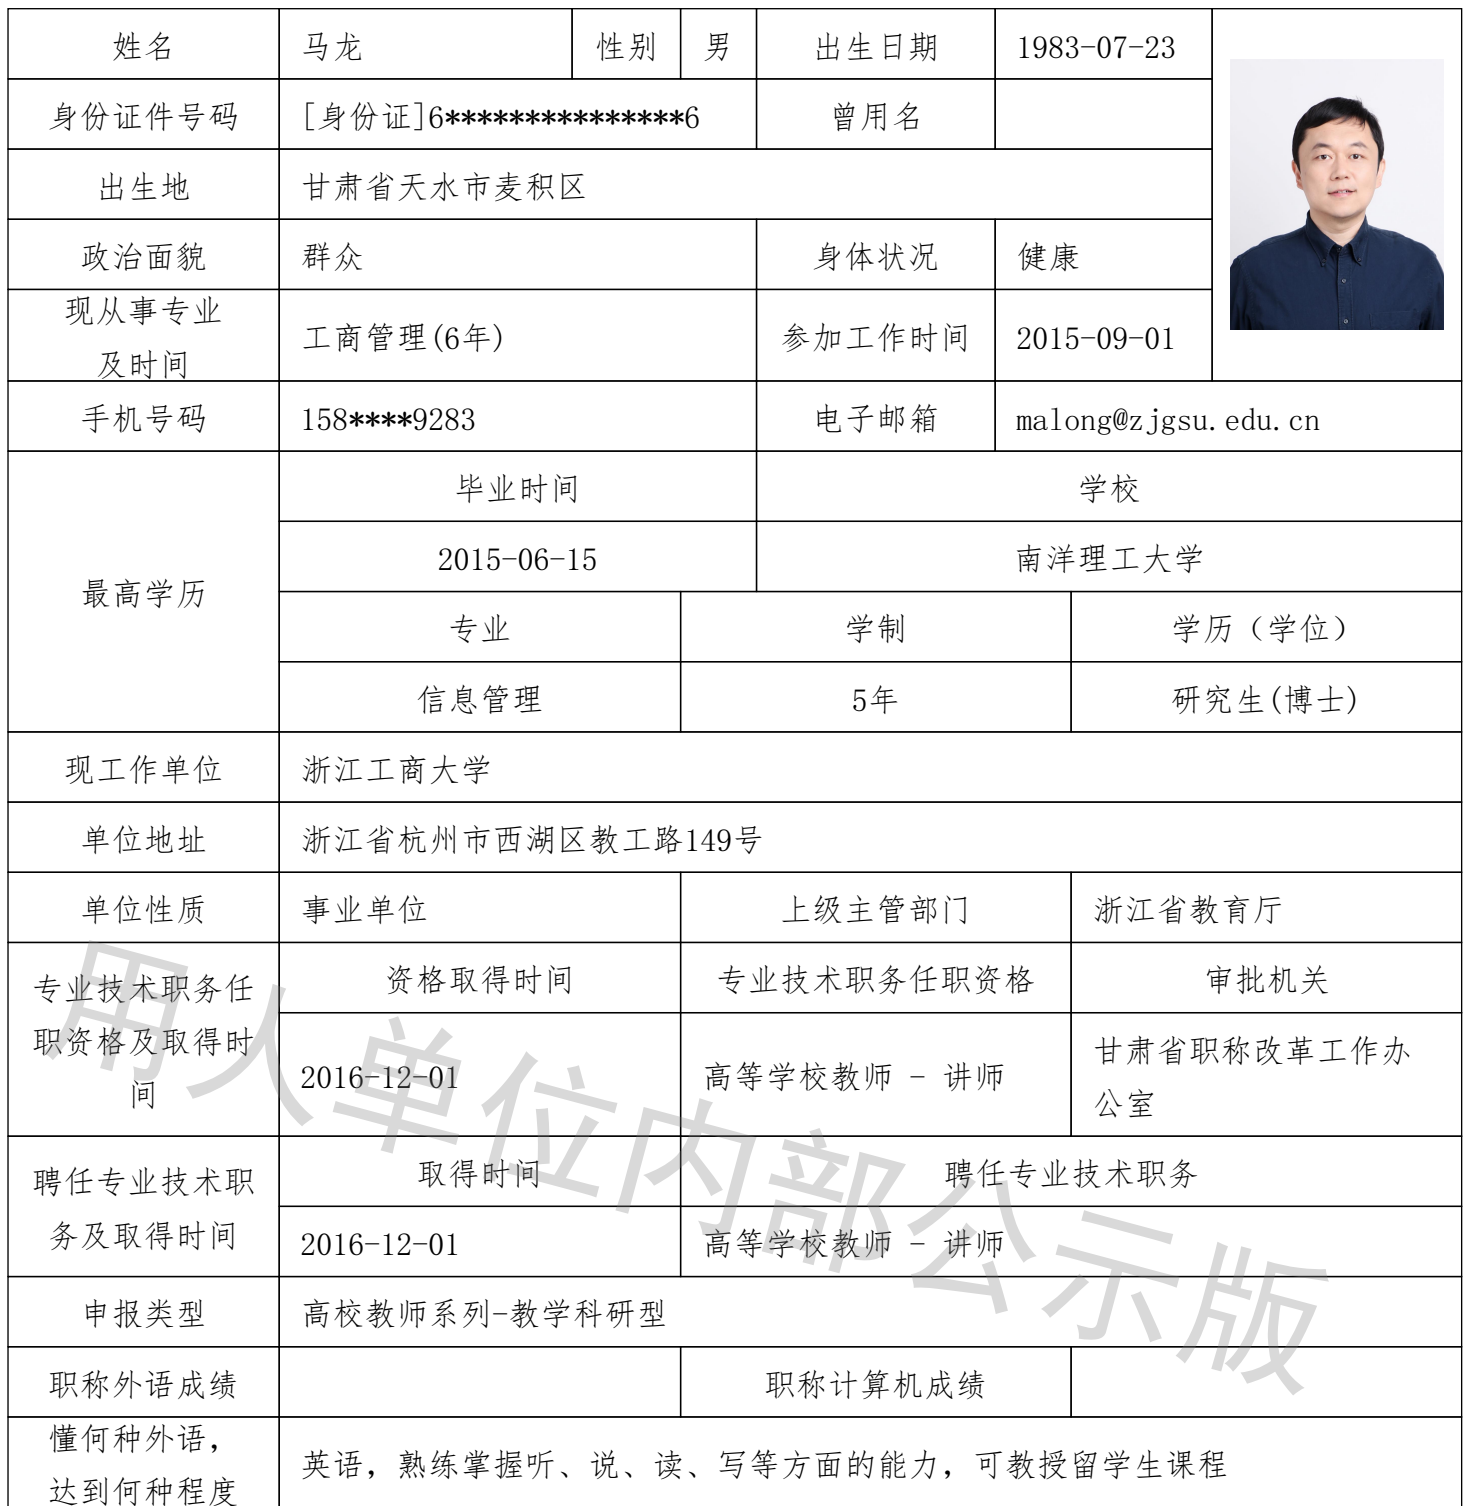 姓名 马龙 性别 男 出生日期 1983-07-23
身份证件号码 [身份证]6***************6 曾用名
出生地 甘肃省天水市麦积区
政治面貌 群众 身体状况 健康
现从事专业
及时间
工商管理(6年) 参加工作时间 2015-09-01
手机号码 158****9283 电子邮箱 malong@zjgsu.edu.cn
最高学历
毕业时间 学校
2015-06-15 南洋理工大学
专业 学制 学历（学位）
信息管理 5年 研究生(博士)
现工作单位 浙江工商大学
单位地址 浙江省杭州市西湖区教工路149号
单位性质 事业单位 上级主管部门 浙江省教育厅
专业技术职务任
职资格及取得时
间
资格取得时间 专业技术职务任职资格 审批机关
2016-12-01 高等学校教师 - 讲师 甘肃省职称改革工作办
公室
聘任专业技术职
务及取得时间
取得时间 聘任专业技术职务
2016-12-01 高等学校教师 - 讲师
申报类型 高校教师系列-教学科研型
职称外语成绩 职称计算机成绩
懂何种外语，
达到何种程度
英语，熟练掌握听、说、读、写等方面的能力，可教授留学生课程
用人单位内部公示版